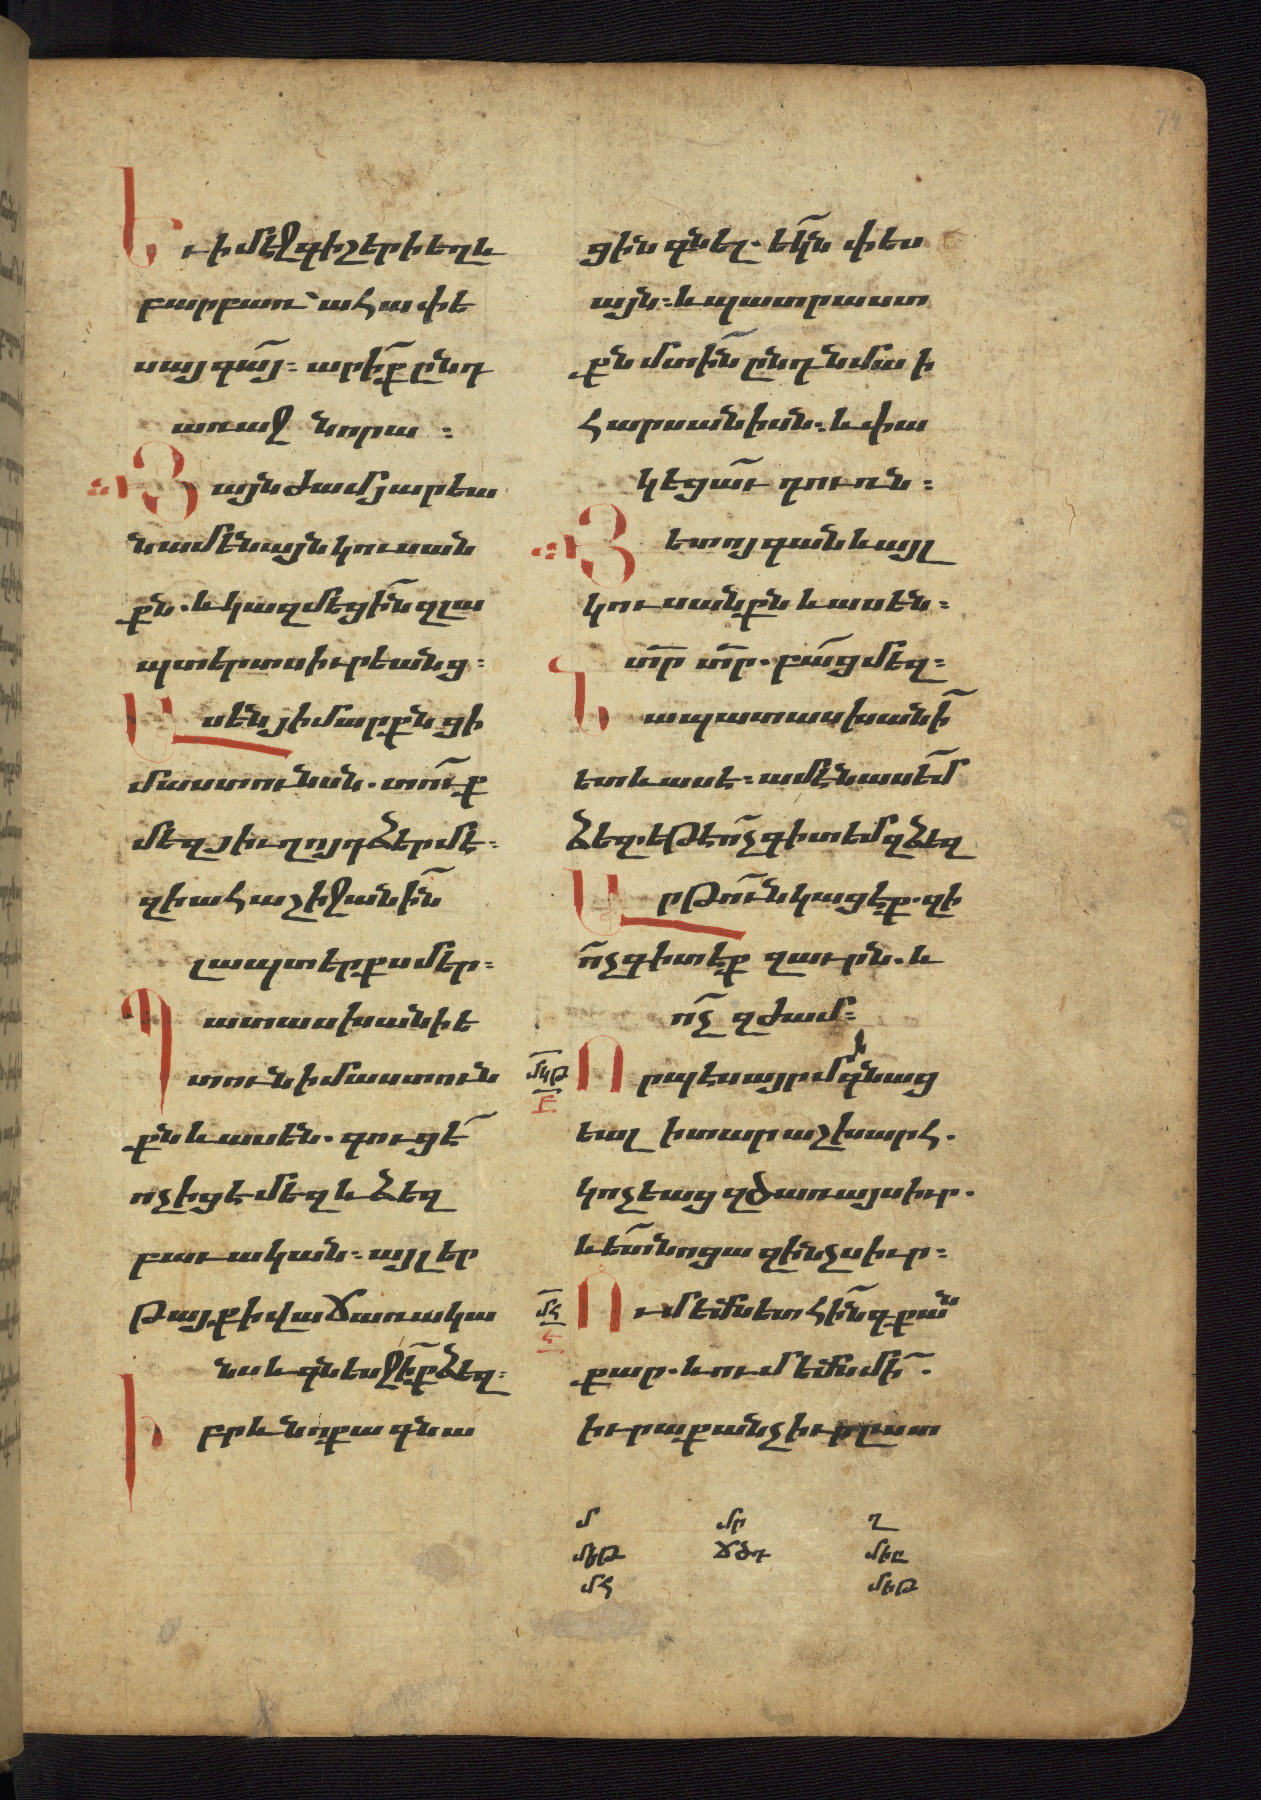 Եւ ի մէջ գիշերի եղև
բարբառ՝ ահա փե
սայ գա՟յ։ արի՟ք ընդ
առաջ նորա ։
Յայնժամ յարեա
ն ամենայն կուսան
քն. և կազմեցի՟ն զլա
պտերս իւրեանց։
Ասեն յիմարքն ցի
մաստունսն. տո՟ւք
մեզ յիւղոյդ ձերմէ։
զի ահա շիջանի՟ն
լապտերքս մեր։
Պատասխանի ե
տուն իմաստուն
քն և ասեն. գուցէ՟
ոչ իցէ մեզ և ձեզ
բաւական։ այլ եր
թայք ի վաճառակա
նս և գնեսջի՟ք ձեզ։
Իբրև նոքա գնա
ցին գնել. եկ՟ն փես
այն։ և պատրաստ
քն մտի՟ն ընդ նմա ի
հարսանիսն։ և փա
կեցա՟ւ դուռն։
Յետոյ գան և այլ
կուսանքն և ասեն։
տ՟ր տ՟ր. բա՟ց մեզ։
Նա պատասխանի՟
ետ և ասէ։ ամէն ասե՟մ
ձեզ. եթէ ո՟չ գիտեմ զձեզ
Արթո՟ւն կացէք. զի
ո՟չ գիտէք զաւրն. և
ո՟չ զժամ։
մկթ Որպէս այր մի գնաց
Բ
եալ ի տար աշխարհ.
կոչեաց զծառայս իւր.
և ետ՟ նոցա զինչս իւր։
մՀ Ում եմն ետ հի՟նգ քան
Ե
քար. և ում եմն մի՟.
իւրաքանչիւր ըստ
մ մր ղ
մթ ճծդ միը
մՀ մխթ